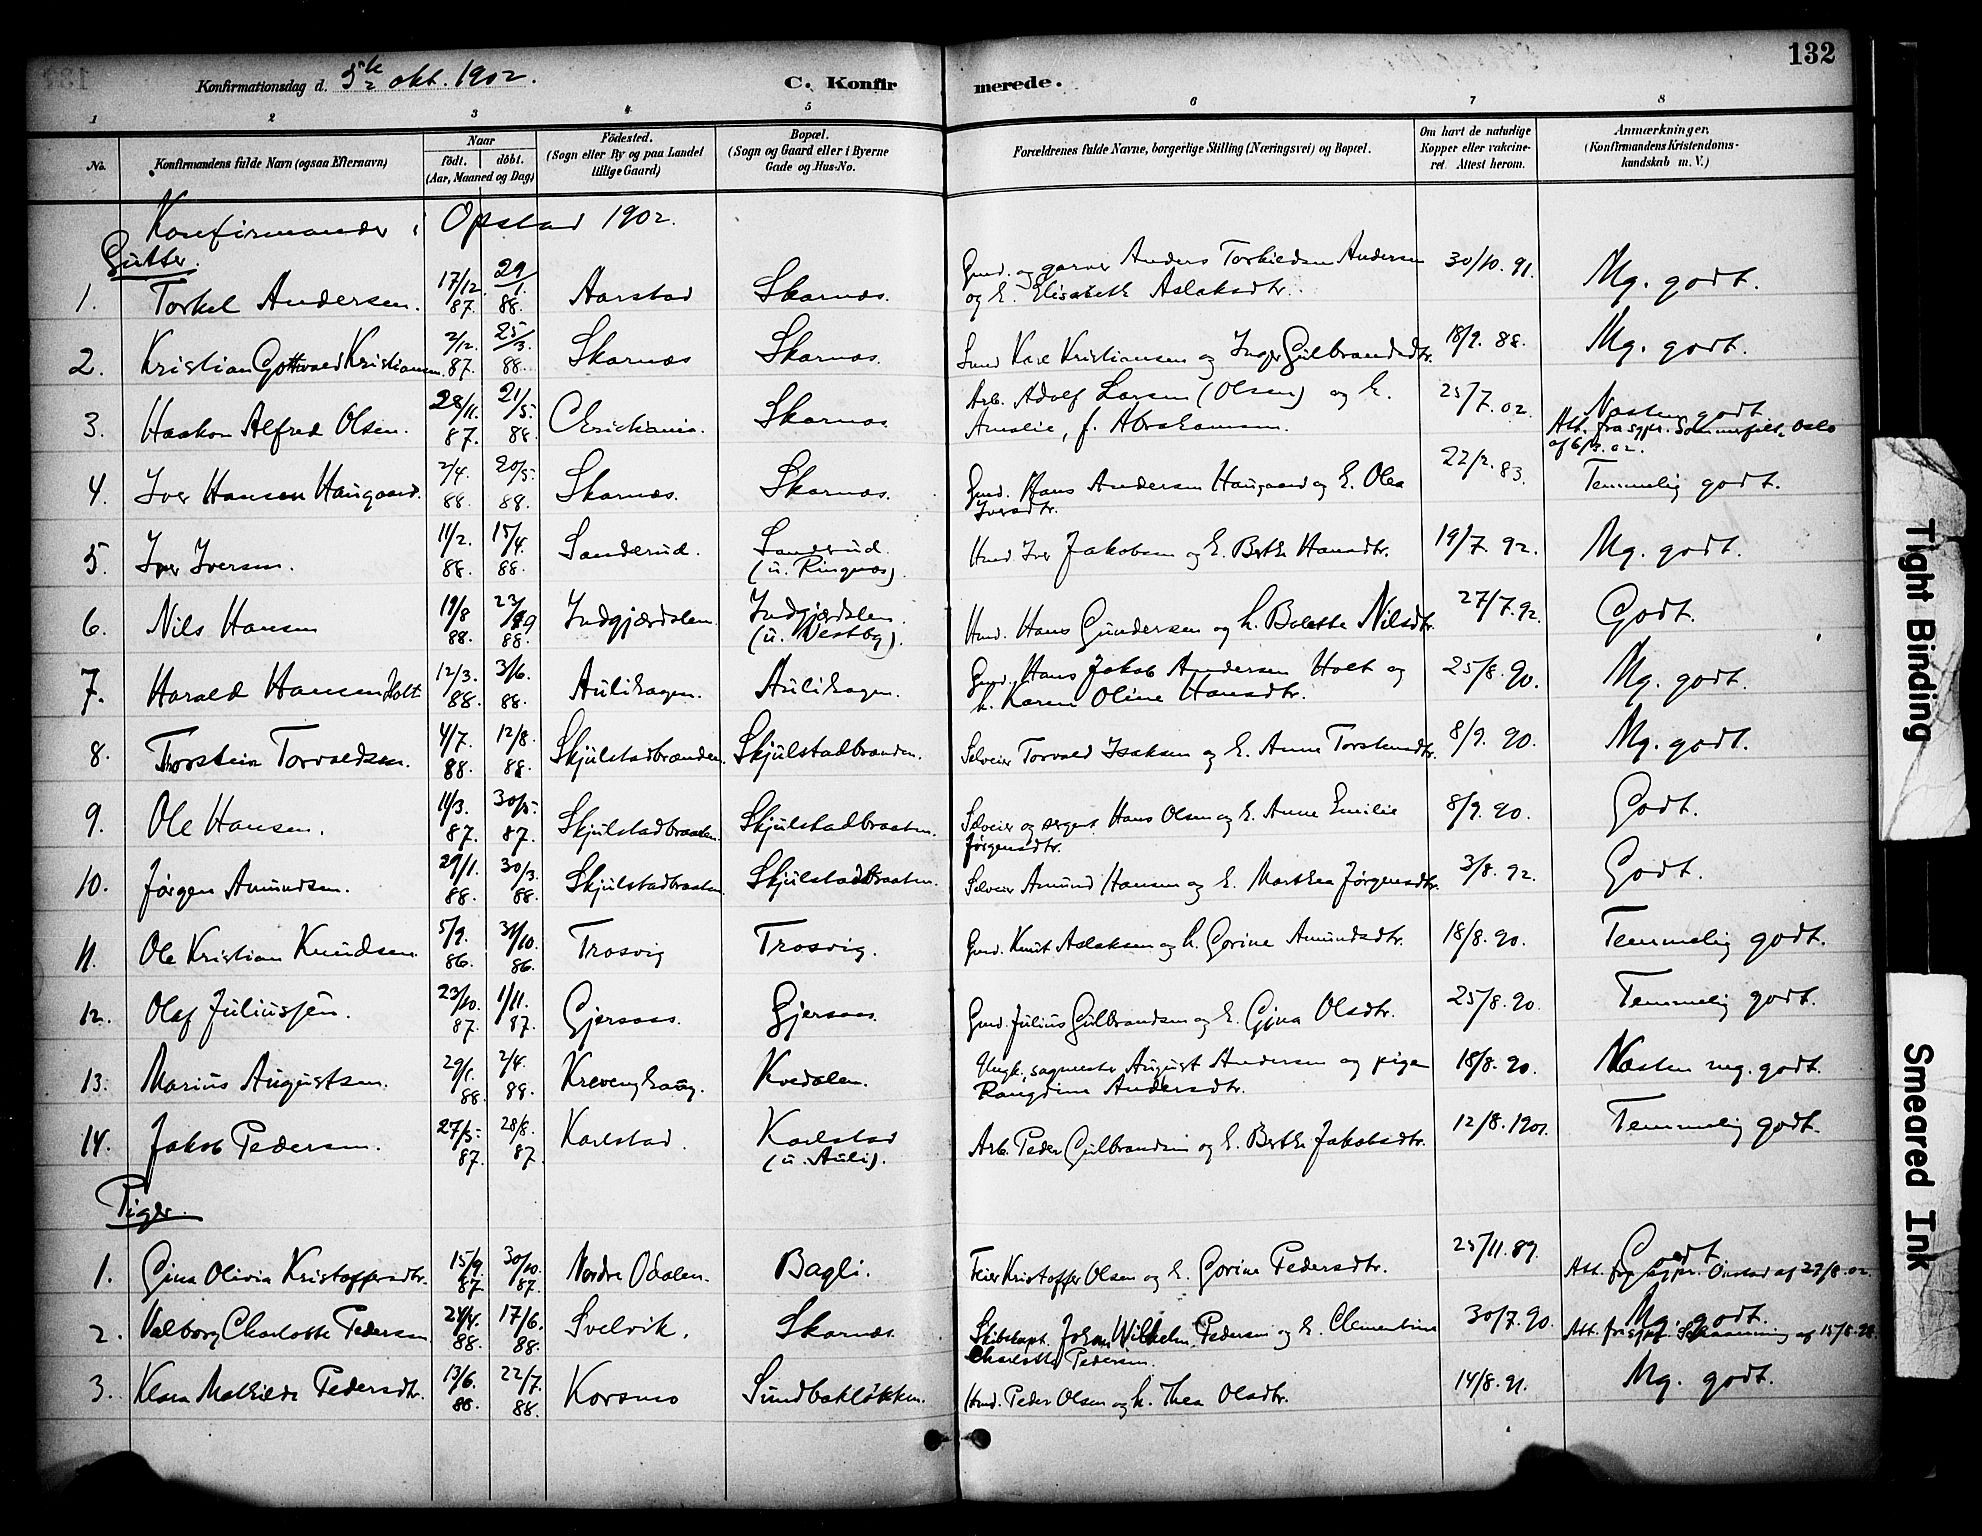 132
Konfirmationsdag d. 5te okt. 1902.
C. Konfirmerede.
1 2 3 4 5 6 7 8
No. Konfirmandens fulde Navn (ogsaa Efternavn) Naar födt. döbt. (Aar, Maaned og Dag) Födested. (Sogn eller By og paa Landet tillige Gaard) Bopæl. (Sogn og Gaard eller i Byerne Gade og Hus-No. Forældrenes fulde Navne, borgerlige Stilling (Næringsvei) og Bopæl. Om havt de naturlige Kopper eller vakcineret. Attest herom. Anmærkninger. (Konfirmandens Kristendomskundskab m. V.)
Konfirmander i Opstad 1902.
Gutter.
1. Torkel Andersen. 17/12. 87. 29/1. 88. Aarstad Skarnæs. Gmd. og garver Anders Torkildsen Andersen og h. Elisabeth Aslaksdtr. 30/10. 91. Mg. godt.
2. Kristian Gottwald Kristiansen. 2/12. 87. 25/3. 88. Skarnæs Skarnæs. Karl Kristiansen og Inger Gulbrandsdtr. 18/9. 88. Mg. godt.
3. Haakon Alfred Olsen. 28/11. 87. 21/5. 88. Christiania. Skarnæs Arb. Adolf Larsen (Olsen) og h. Amalie, f. Abrahamsen. 25/7. 02. Næsten godt. Att. fra sgpr. Sommerfelt, Oslo af 6/9. 02.
4. Iver Hansen Haugaard. 2/4. 88. 20/5. 88. Skarnæs. Skarnæs. Gmd. Hans Andersen Haugaard og h. Olea Iversdtr. 22/2. 83. Temmelig godt.
5. Iver Iversen. 11/2. 88. 15/4. 88. Sanderud. Sanderud. (u. Ringnæs). Hmd. Iver Jakobsen og h. Berthe Hansdtr. 19/7. 92. Mg. godt.
6. Nils Hansen 19/8 88. 23/9 88. Indgjærdslen. Indgjærdslen. (u. Vestby). Hmd. Hans Gundersen og h. Bolette Nilsdtr. 27/7. 92. Godt.
7. Harald Hansen Holt 12/3. 88. 3/6. 88. Aulihagen. Aulihagen. Gmd. Hans Jakob Andersen Holt og h. Karen Oline Hansdtr. 25/8. 90. Mg. godt.
8. Torstein Torvaldsen. 4/7. 88. 12/8. 88. Skjulstadbrænden. Skjulstadbrænden. Selveier Torvald Isaksen og h. Anne Torstensdtr. 8/9. 90. Mg. godt.
9. Ole Hansen. 11/3. 87. 30/5. 87. Skjulstadbraaten. Skjulstadbraaten. Selveier og sergent Hans Olsen og h. Anne Emilie Jørgensdtr. 8/9. 90. Godt.
10. Jørgen Amundsen. 29/1. 88. 30/3. 88. Skjulstadbraaten. Skjulstadbraaten. Selveier Amund Hansen og h. Marthea Jørgensdtr. 3/8. 92. Godt.
11. Ole Kristian Knudsen. 5/9. 86. 31/10. 86. Trosvig Trosvig. Gmd. Knut Aslaksen og h. Gorine Amundsdtr. 18/8. 90. Temmelig godt.
12. Olaf Juliussen. 23/10. 87. 1/11. 87. Gjersaas. Gjersaas. Gmd. Julius Gulbrandsen og h. Gina Olsdtr. 25/8. 90. Temmelig godt.
13. Marius Augustsen. 29/1. 88. 2/4. 88. Kvedalen. Ungk., sagmester August Andersen og pige Rangdine Andersdtr. 18/8. 90. Næsten mg. godt.
14. Jakob Pedersen. 27/5. 87. 28/8. 87. Karlstad. Karlstad (u. Auli). Arb. Peder Gulbrandsen og h. Berthe Jakobsdtr. 12/8. 1901. Temmelig godt.
Piger.
1. Gina Olivia Kristoffersdtr. 15/9 87 30/10. 87. Nordre Odalen. Bagli. Feier Kristoffer Olsen og h. Gorine Pedersdtr. 25/11. 89. Godt Att. fra sgpr. Onstad af 29/8. 02.
2. Valborg Charlotte Pedersen. 24/4. 88. 17/6. 88. Svelvik. Skarnæs. Skibskapt. Johan Wilhelm Pedersen og h. Clementine Charlotte Pedersen. 30/7. 90. Mg. godt. Att. fra sgpr.
3. Klara Mathilde Pedersdtr. 13/6. 88. 22/7. 88. Korsmo Sundbakløkken. Hmd. Peder Olsen og h. Thea Olsdtr. 14/8. 91. Mg. godt.
Tight Binding
Smeared Ink